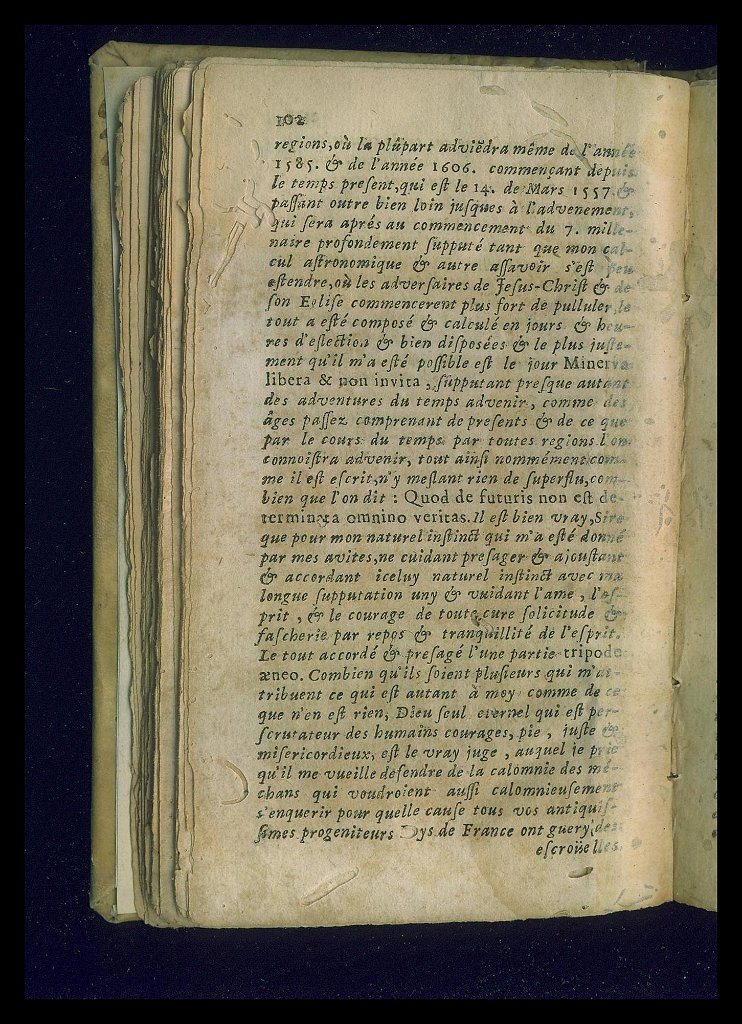 102
regions,où la plûpart adviẽdra même de l'année
1585. & de l'année 1606. commençant depuis
le temps present,qui est le 14. de Mars 1557.&
passant outre bien loin jusques à l'advenement,
qui sera aprés au commencement du 7. mille-
naire profondement supputé tant que mon cal-
cul astronomique & autre assavoir s'est peu
estendre,où les adversaires de Jesus-Christ & de
son Eglise commencerent plus fort de pulluler,le
tout a esté composé & calculé en jours & heu-
res d'eslection & bien disposées & le plus juste-
ment qu'il m'a esté possible est le jour Minerva
libera & non invita, supputant presque autant
des adventures du temps advenir, comme des
âges passez comprenant de presents & de ce que
par le cours du temps par toutes regions l'on
connoistra advenir, tout ainsi nommément com-
me il est escrit,n'y meslant rien de superflu,com-
bien que l'on dit : Quod de futuris non est de-
terminata omnino veritas. Il est bien vray,Sire
que pour mon naturel instinct qui m'a esté donné
par mes avites,ne cuidant presager & ajoustant
& accordant iceluy naturel instinct avec ma
longue supputation uny & vuidant l'ame, l'es-
prit, & le courage de toute cure solicitude &
fascherie par repos & tranquillité de l'esprit.
Le tout accordé & presagé l'une partie tripode
æneo. Combien qu'ils soient plusieurs qui m'at-
tribuent ce qui est autant à moy comme de ce
que n'en est rien, Dieu seul eternel qui est per-
scrutateur des humains courages, pie, juste &
misericordieux, est le vray juge, auquel je prie
qu'il me vueille defendre de la calomnie des mé-
chans qui voudroient aussi calomnieusement
s'enquerir pour quelle cause tous vos antiquis-
simes progeniteurs Dys de France ont guery des
escroüelles.